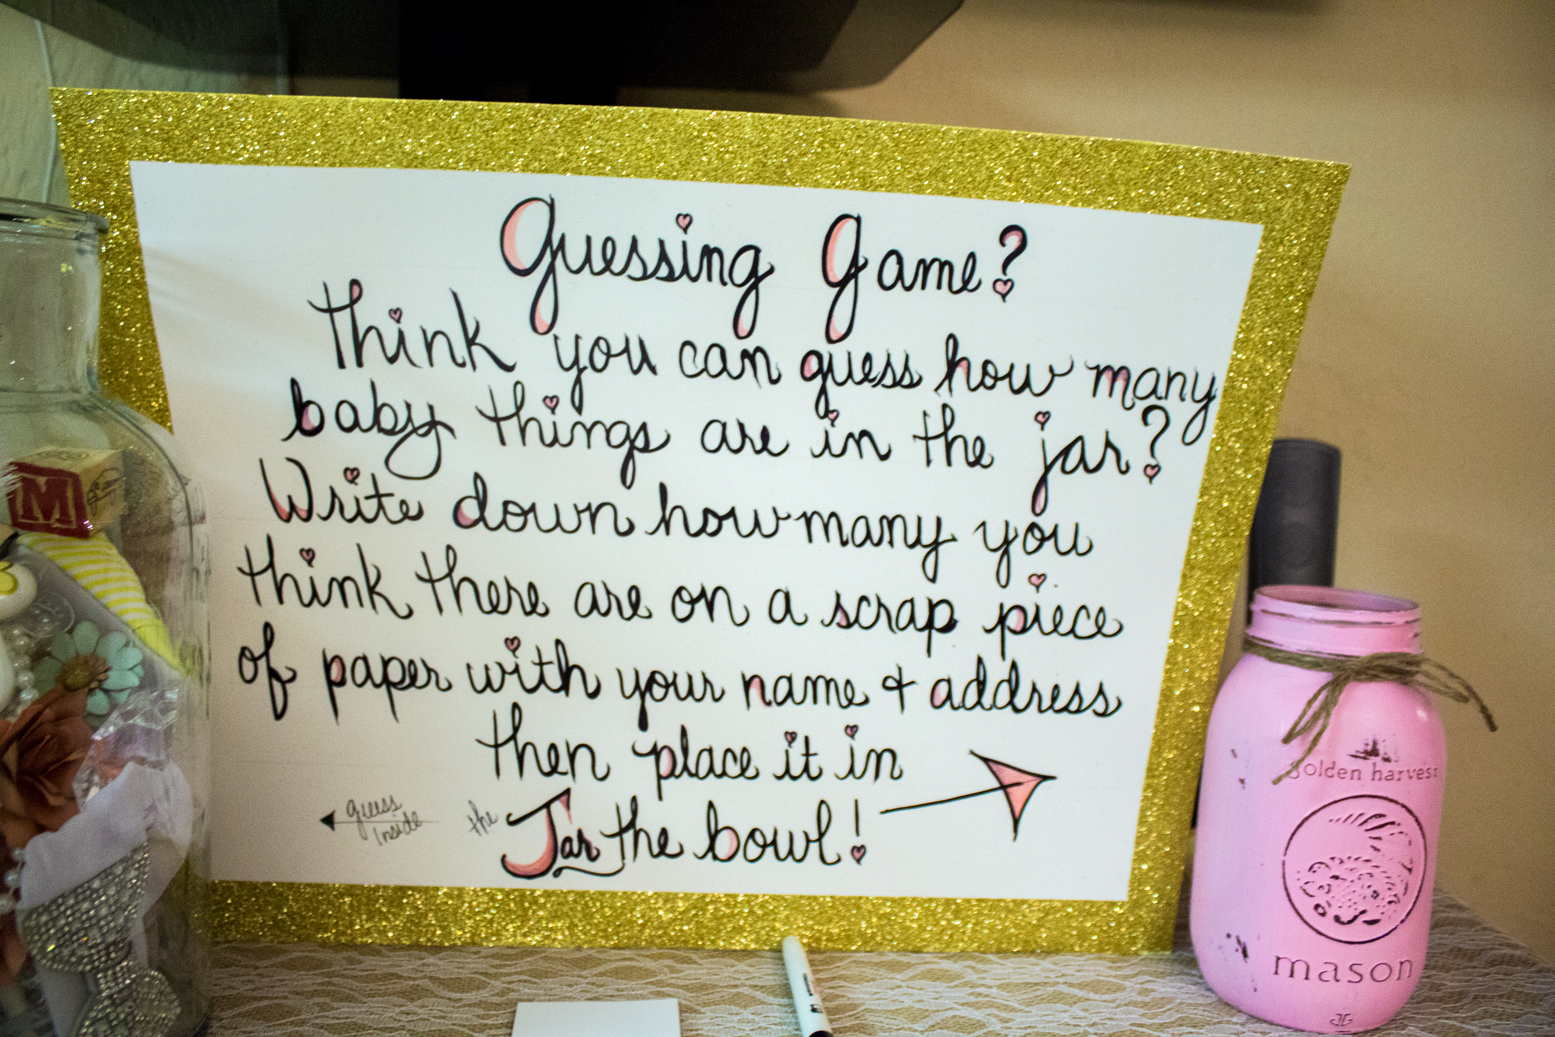 Guessing Game?
Think you can guess how many
baby things are in the jar?
Write down how many you
think there are on a scrap piece
of paper with your name & address
then place it in
the Jar the bowl!
guess
Inside
M
Golden harvest
mason